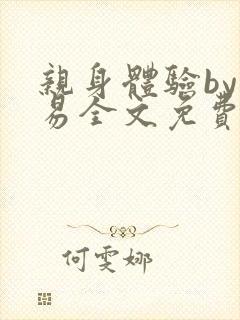 親身體驗by
易全文免費
何雯娜